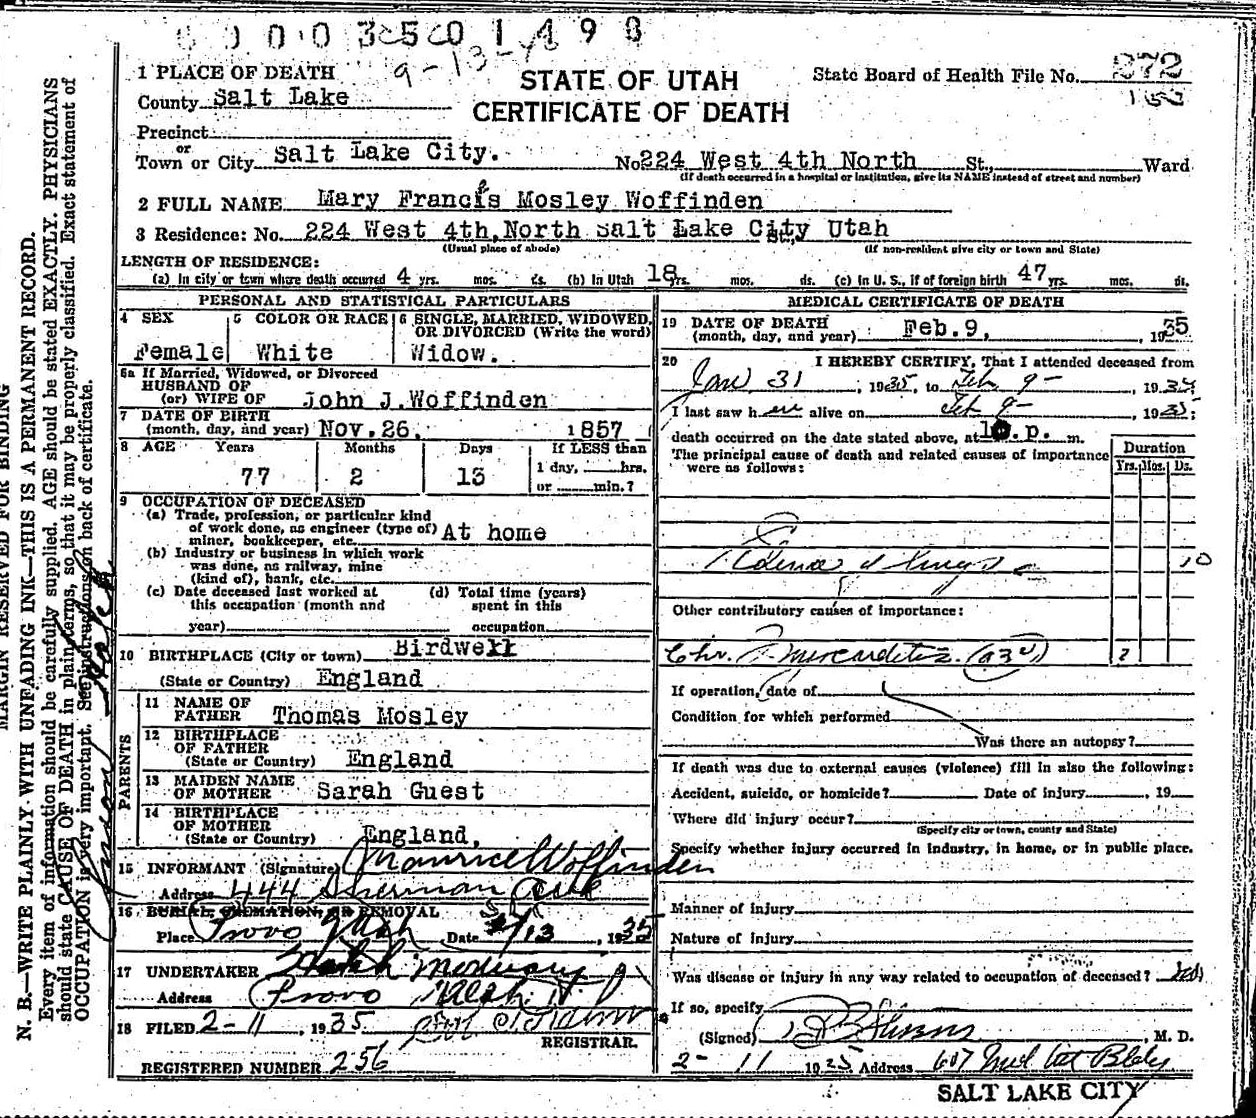 0 0 0 0 3 5 0 1 4 9 8
9-13-
1 PLACE OF DEATH
County Salt Lake
STATE OF UTAH
CERTIFICATE OF DEATH
State Board of Health File No. 272
Precinct
or
Town or City Salt Lake City. No 224 West 4th North St, Ward
(If death occurred in a hospital or institution, give its NAME instead of street and number)
2 FULL NAME Mary Francis Mosley Woffinden
3 Residence: No. 224 West 4th, North Salt Lake City Utah
(Usual place of abode) (If non-resident give city or town and State)
LENGTH OF RESIDENCE:
(a) In city or town where death occurred 4 yrs. mos. ds. (b) In Utah 18 yrs. mos. ds. (c) In U. S., if of foreign birth 47 yrs. mos. ds.
PERSONAL AND STATISTICAL PARTICULARS
4 SEX Female
5 COLOR OR RACE White
6 SINGLE, MARRIED, WIDOWED, OR DIVORCED (Write the word) Widow.
6a If Married, Widowed, or Divorced
HUSBAND OF
(or) WIFE OF John J. Woffinden
7 DATE OF BIRTH
(month, day, and year) Nov. 26, 1857
8 AGE Years Months Days If LESS than
77 2 13 1 day, hrs.
or min.?
9 OCCUPATION OF DECEASED
(a) Trade, profession, or particular kind
of work done, as engineer (type of)
miner, bookkeeper, etc. At home
(b) Industry or business in which work
was done, as railway, mine
(kind of), bank, etc.
(c) Date deceased last worked at
this occupation (month and
year)
(d) Total time (years)
spent in this
occupation
10 BIRTHPLACE (City or town) Birdwell
(State or Country) England
PARENTS
11 NAME OF
FATHER Thomas Mosley
12 BIRTHPLACE
OF FATHER
(State or Country) England
13 MAIDEN NAME
OF MOTHER Sarah Guest
14 BIRTHPLACE
OF MOTHER
(State or Country) England,
15 INFORMANT (Signature) Maurice Woffinden
Address 444 Sherman
16 BURIAL, CREMATION, OR REMOVAL
Place Provo Utah Date 2/13, 1935
17 UNDERTAKER
Address Provo Utah
18 FILED 2-11, 1935
REGISTRAR.
REGISTERED NUMBER 256
MEDICAL CERTIFICATE OF DEATH
19 DATE OF DEATH
(month, day, and year) Feb. 9, 1935
20 I HEREBY CERTIFY, That I attended deceased from
Jan 31, 1935, to Feb 9-, 1935
I last saw her alive on Feb 9-, 1935;
death occurred on the date stated above, at 10.p. m.
The principal cause of death and related causes of importance
were as follows:
Duration
Yrs. Mos. Ds.
Edema of lungs 10
Other contributory causes of importance:
Chr. Myocarditis (93c) 2
If operation, date of
Condition for which performed
Was there an autopsy?
If death was due to external causes (violence) fill in also the following:
Accident, suicide, or homicide? Date of injury, 19
Where did injury occur?
(Specify city or town, county and State)
Specify whether injury occurred in industry, in home, or in public place.
Manner of injury
Nature of injury
Was disease or injury in any way related to occupation of deceased?
If so, specify
(Signed) , M. D.
2-11 1935 Address 607
SALT LAKE CITY
MARGIN RESERVED FOR BINDING
N. B.—WRITE PLAINLY WITH UNFADING INK—THIS IS A PERMANENT RECORD.
Every item of information should be carefully supplied. AGE should be stated EXACTLY. PHYSICIANS
should state CAUSE OF DEATH in plain terms, so that it may be properly classified. Exact statement of
OCCUPATION is very important. See instructions on back of certificate.